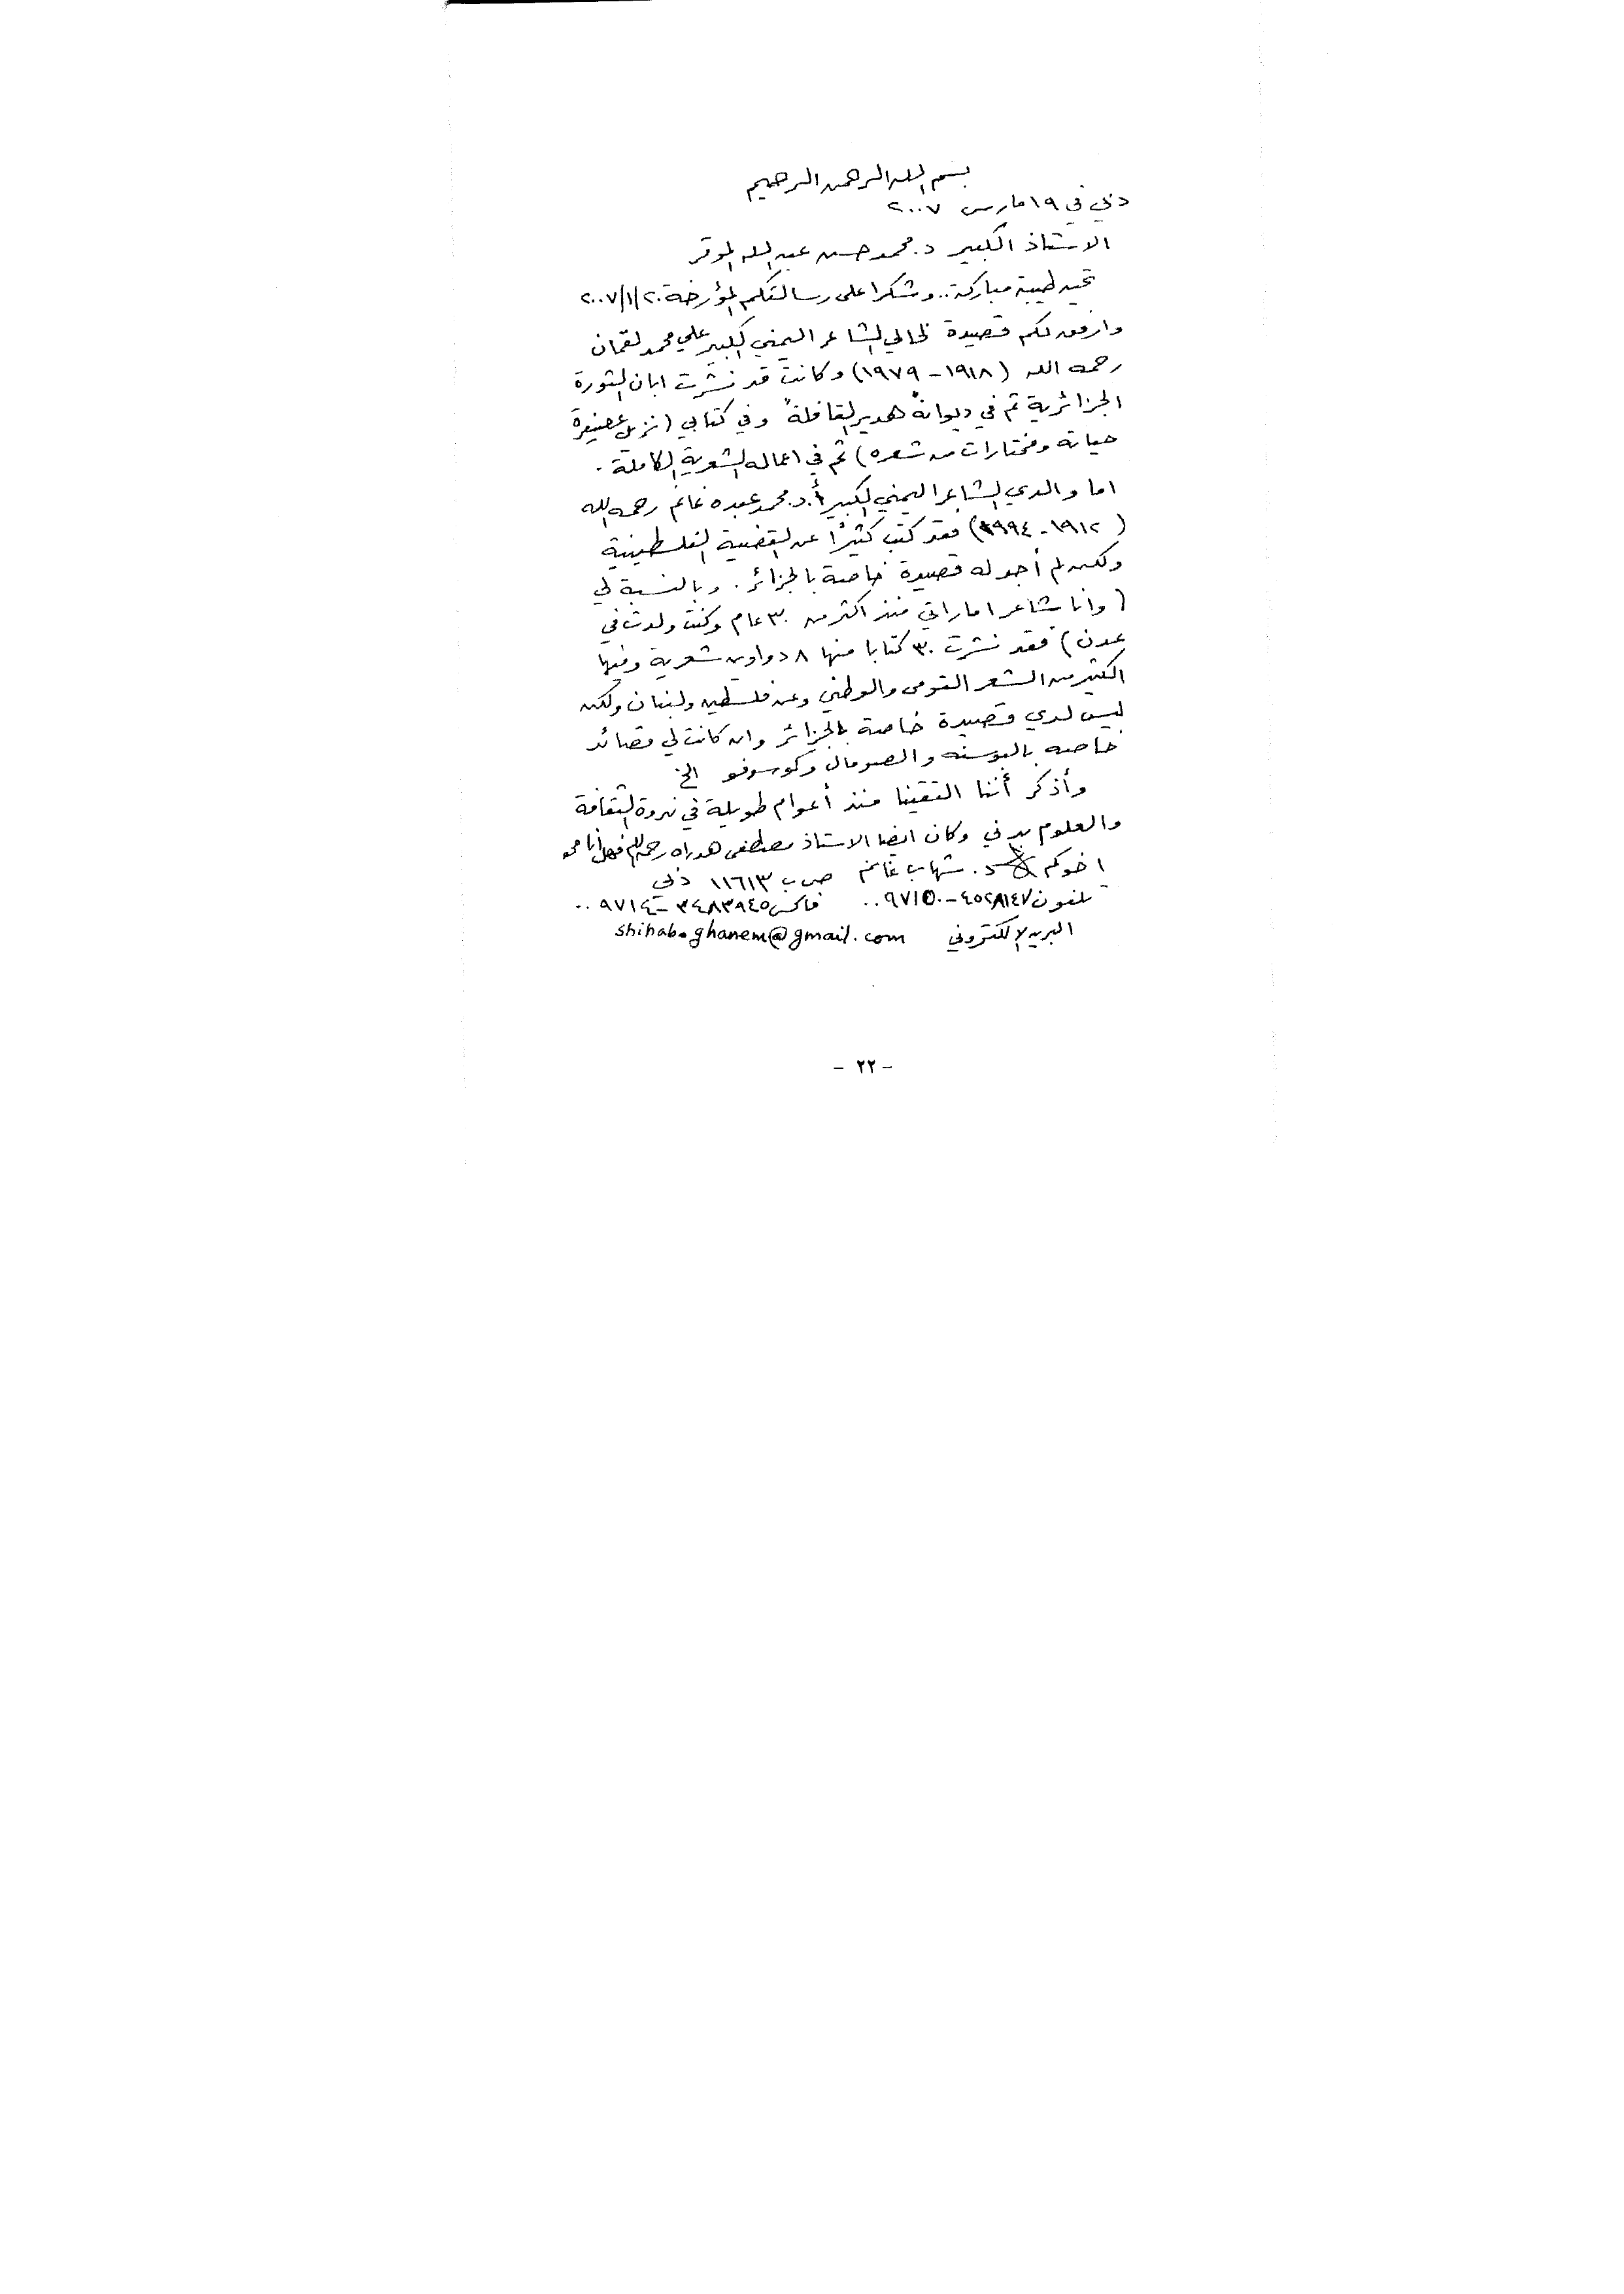 بسم الله الرحمن الرحيم
دبي في ١٩ مارس ٢٠٠٧
الاستاذ الكبير د. محمد حسن عبد الله الموقر
تحية طيبة مباركة.. وشكرا على رسالتكم المؤرخة ٢٠٠٧/١/٢٠
وارفق لكم قصيدة لخالي الشاعر اليمني الكبير علي محمد لقمان
رحمه الله (١٩١٨ - ١٩٧٩) وكانت قد نشرت ابان الثورة
الجزائرية ثم في ديوانه "هدير القافلة" وفي كتابي (نزيل عصيفرة
حياته ومختارات من شعره) ثم في اعماله الشعرية الكاملة.
اما والدي الشاعر اليمني الكبير أ.د. محمد عبده غانم رحمه الله
(١٩١٢ - ١٩٩٤) فقد كتب كثيرًا عن القضية الفلسطينية
ولكن لم أجد له قصيدة خاصة بالجزائر. وبالنسبة لي
(وانا شاعر اماراتي منذ اكثر من ٣٠ عام وكنت ولدت في
عدن) فقد نشرت ٣٠ كتابا منها ٨ دواوين شعرية وفيها
الكثير من الشعر القومي والوطني وعن فلسطين ولبنان ولكن
ليس لدي قصيدة خاصة بالجزائر وان كانت لي قصائد
خاصه بالبوسنه والصومال وكوسوفو الخ
وأذكر أننا التقينا منذ أعوام طويلة في ندوة الثقافة
والعلوم بدبي وكان ايضا الاستاذ مصطفى هداره رحمه الله فهل انا
اخوكم د. شهاب غانم ص ب ١١٦١٣ دبي
تلفون ٤٥٢٨١٤٧ - ٠٠٩٧١٥٠ فاكس ٣٤٨٣٩٤٥ - ٠٠٩٧١٤
البريد الإلكتروني shihab.ghanem@gmail.com
- ٢٢ -